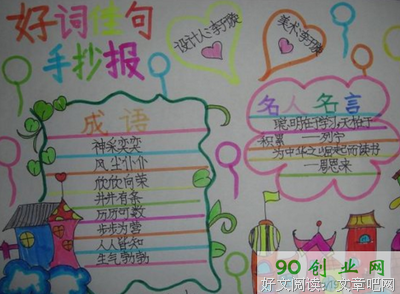 好词佳句
手抄报
设计人:李
美术:李
成语
神采奕奕
风尘仆仆
欣欣向荣
井井有条
历历可数
步步为营
人人皆知
生气勃勃
名人名言
聪明在学习天才在
积累——列宁
为中华之崛起而读书
——周恩来
90创业网
好文阅读:文章吧网